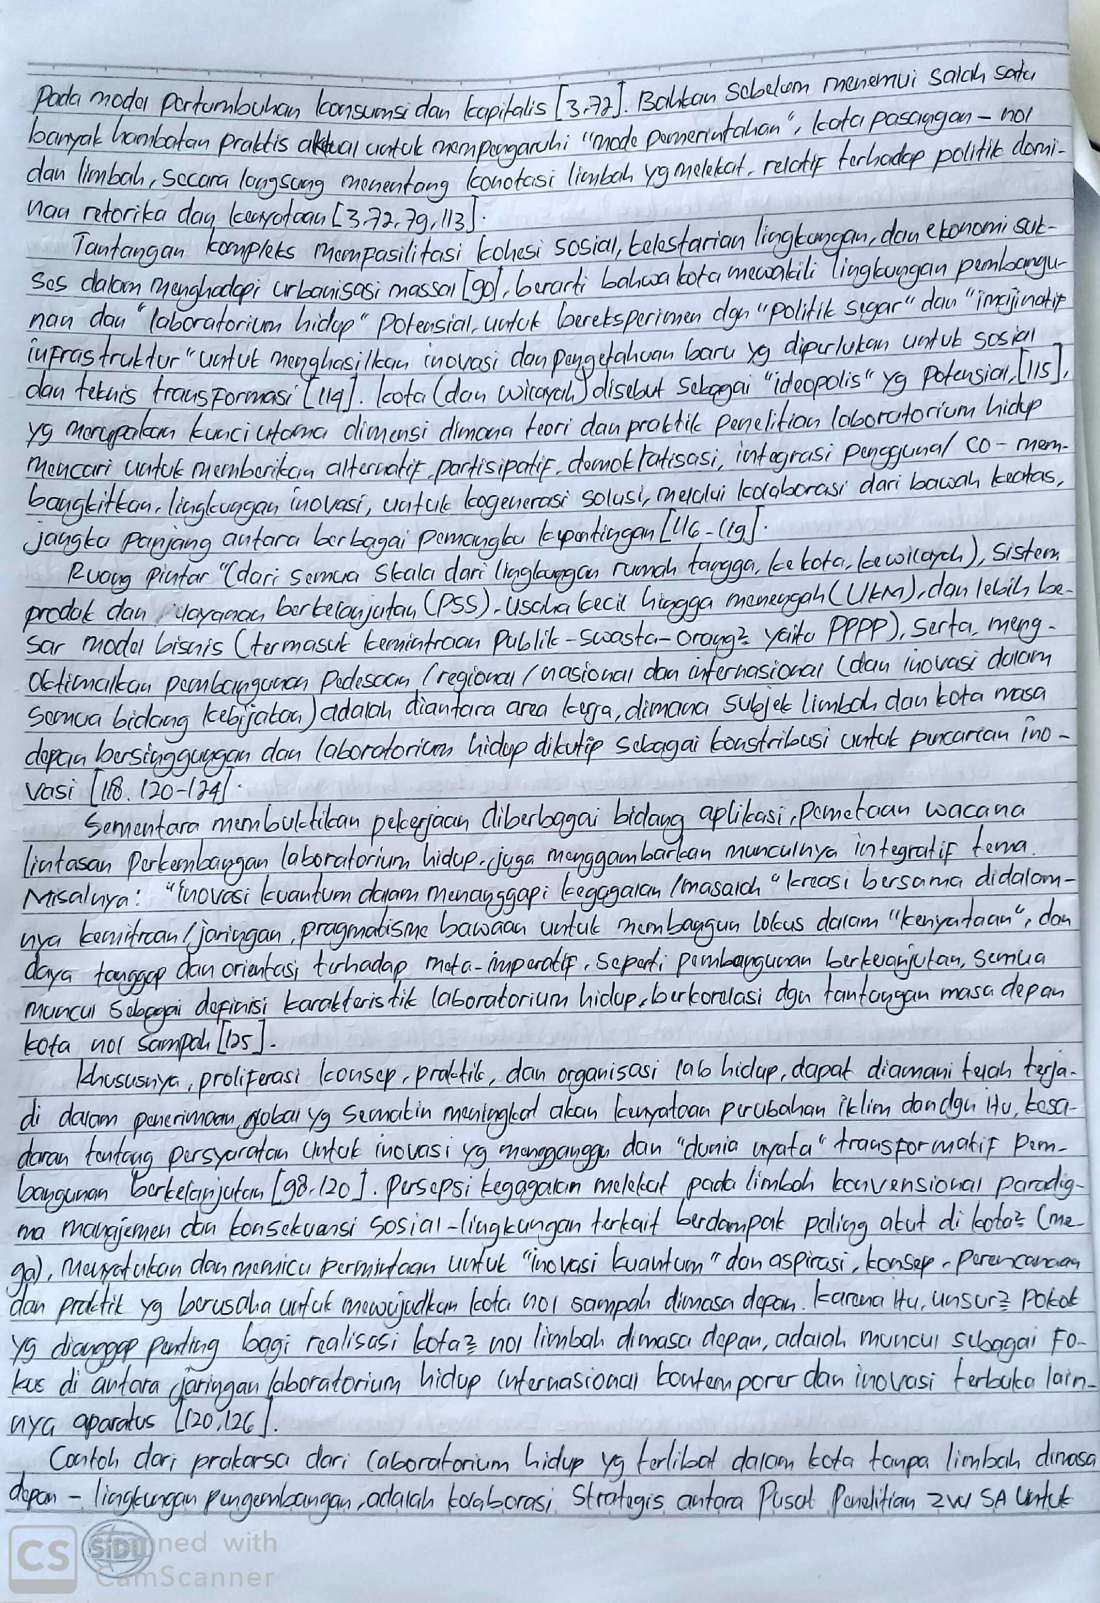 pada model pertumbuhan konsumsi dan kapitalis [3.72]. Bahkan sebelum menemui salah satu
banyak hambatan praktis aktual untuk mempengaruhi "mode pemerintahan", kota pasangan - nol
dan limbah, secara langsung menentang konotasi limbah yg melekat, relatif terhadap politik domi-
nan retorika dan kenyataan [3.72.79,113].
Tantangan kompleks mempasilitasi kohesi sosial, kelestarian lingkungan, dan ekonomi suk-
ses dalam menghadapi urbanisasi massal [90], berarti bahwa kota mewakili lingkungan pembangu-
nan dan "laboratorium hidup" potensial, untuk bereksperimen dgn "politik segar" dan "imajinatif
infrastruktur" untuk menghasilkan inovasi dan pengetahuan baru yg diperlukan untuk sosial
dan teknis transformasi [114]. kota (dan wilayah) disebut sebagai "ideopolis" yg potensial, [115],
yg merupakan kunci utama dimensi dimana teori dan praktik penelitian laboratorium hidup
mencari untuk memberikan alternatif, partisipatif, demokratisasi, integrasi pengguna/ co - mem-
bangkitkan, lingkungan inovasi, untuk kogenerasi solusi, melalui kolaborasi dari bawah keatas,
jangka panjang antara berbagai pemangku kepentingan [116-119].
Ruang pintar "(dari semua skala dari lingkungan rumah tangga, ke kota, ke wilayah), sistem
produk dan layanan berkelanjutan (PSS), usaha kecil hingga menengah (UKM), dan lebih be-
sar model bisnis (termasuk kemintraan publik - swasta - orang2 yaitu PPPP), serta, meng-
oktimalkan pembangunan pedesaan / regional / nasional dan internasional (dan inovasi dalam
semua bidang kebijakan) adalah diantara area kerja, dimana subjek limbah dan kota masa
depan bersinggungan dan laboratorium hidup dikutip sebagai konstribusi untuk pencarian ino-
vasi [118. 120-124].
Sementara membuktikan pekerjaan diberbagai bidang aplikasi, pemetaan wacana
lintasan perkembangan laboratorium hidup, juga menggambarkan munculnya integratif tema.
Misalnya : "inovasi kuantum dalam menanggapi kegagalan /masalah" kreasi bersama didalam-
nya kemitraan/jaringan, pragmatisme bawaan untuk membangun lokus dalam "kenyataan", dan
daya tanggap dan orientasi terhadap meta-imperatif, seperti pembangunan berkelanjutan, semua
muncul sebagai definisi karakteristik laboratorium hidup, berkorelasi dgn tantangan masa depan
kota nol sampah [125].
Khususnya, proliferasi konsep, praktik, dan organisasi lab hidup, dapat diamani telah terja-
di dalam penerimaan global yg semakin meningkat akan kenyataan perubahan iklim dan dgn itu, kesa-
daran tentang persyaratan untuk inovasi yg mengganggu dan "dunia nyata" transformatif pem-
bangunan berkelanjutan [98.120]. persepsi kegagalan melekat pada limbah konvensional paradig-
ma manajemen dan konsekuensi sosial-lingkungan terkait berdampak paling akut di kota2 (me-
ga), menyatukan dan memicu permintaan untuk "inovasi kuantum" dan aspirasi, konsep, perencanaan
dan praktik yg berusaha untuk mewujudkan kota nol sampah dimasa depan. karena itu, unsur2 pokok
yg dianggap penting bagi realisasi kota2 nol limbah dimasa depan, adalah muncul sebagai fo-
kus di antara jaringan laboratorium hidup internasional kontemporer dan inovasi terbuka lain-
nya aparatus [120,126].
Contoh dari prakarsa dari laboratorium hidup yg terlibat dalam kota tanpa limbah dimasa
depan - lingkungan pengembangan, adalah kolaborasi strategis antara Pusat Penelitian ZW SA untuk
CS SIDU Scanned with
CamScanner